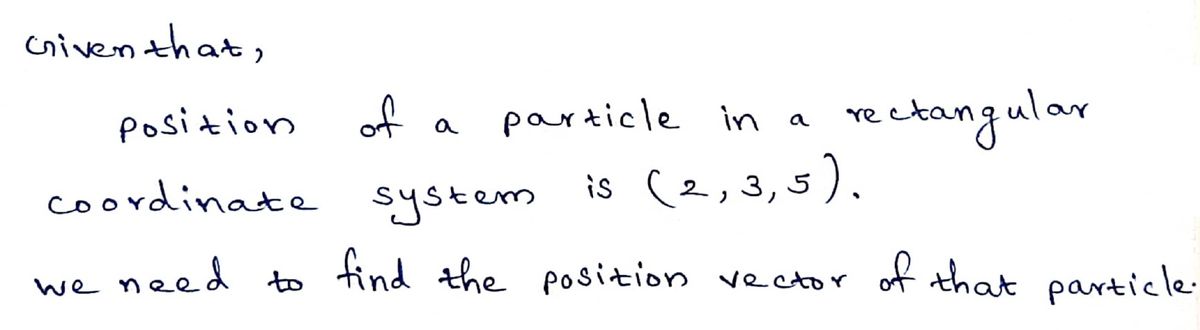 Given that,
position of a particle in a rectangular
coordinate system is (2, 3, 5).
we need to find the position vector of that particle.